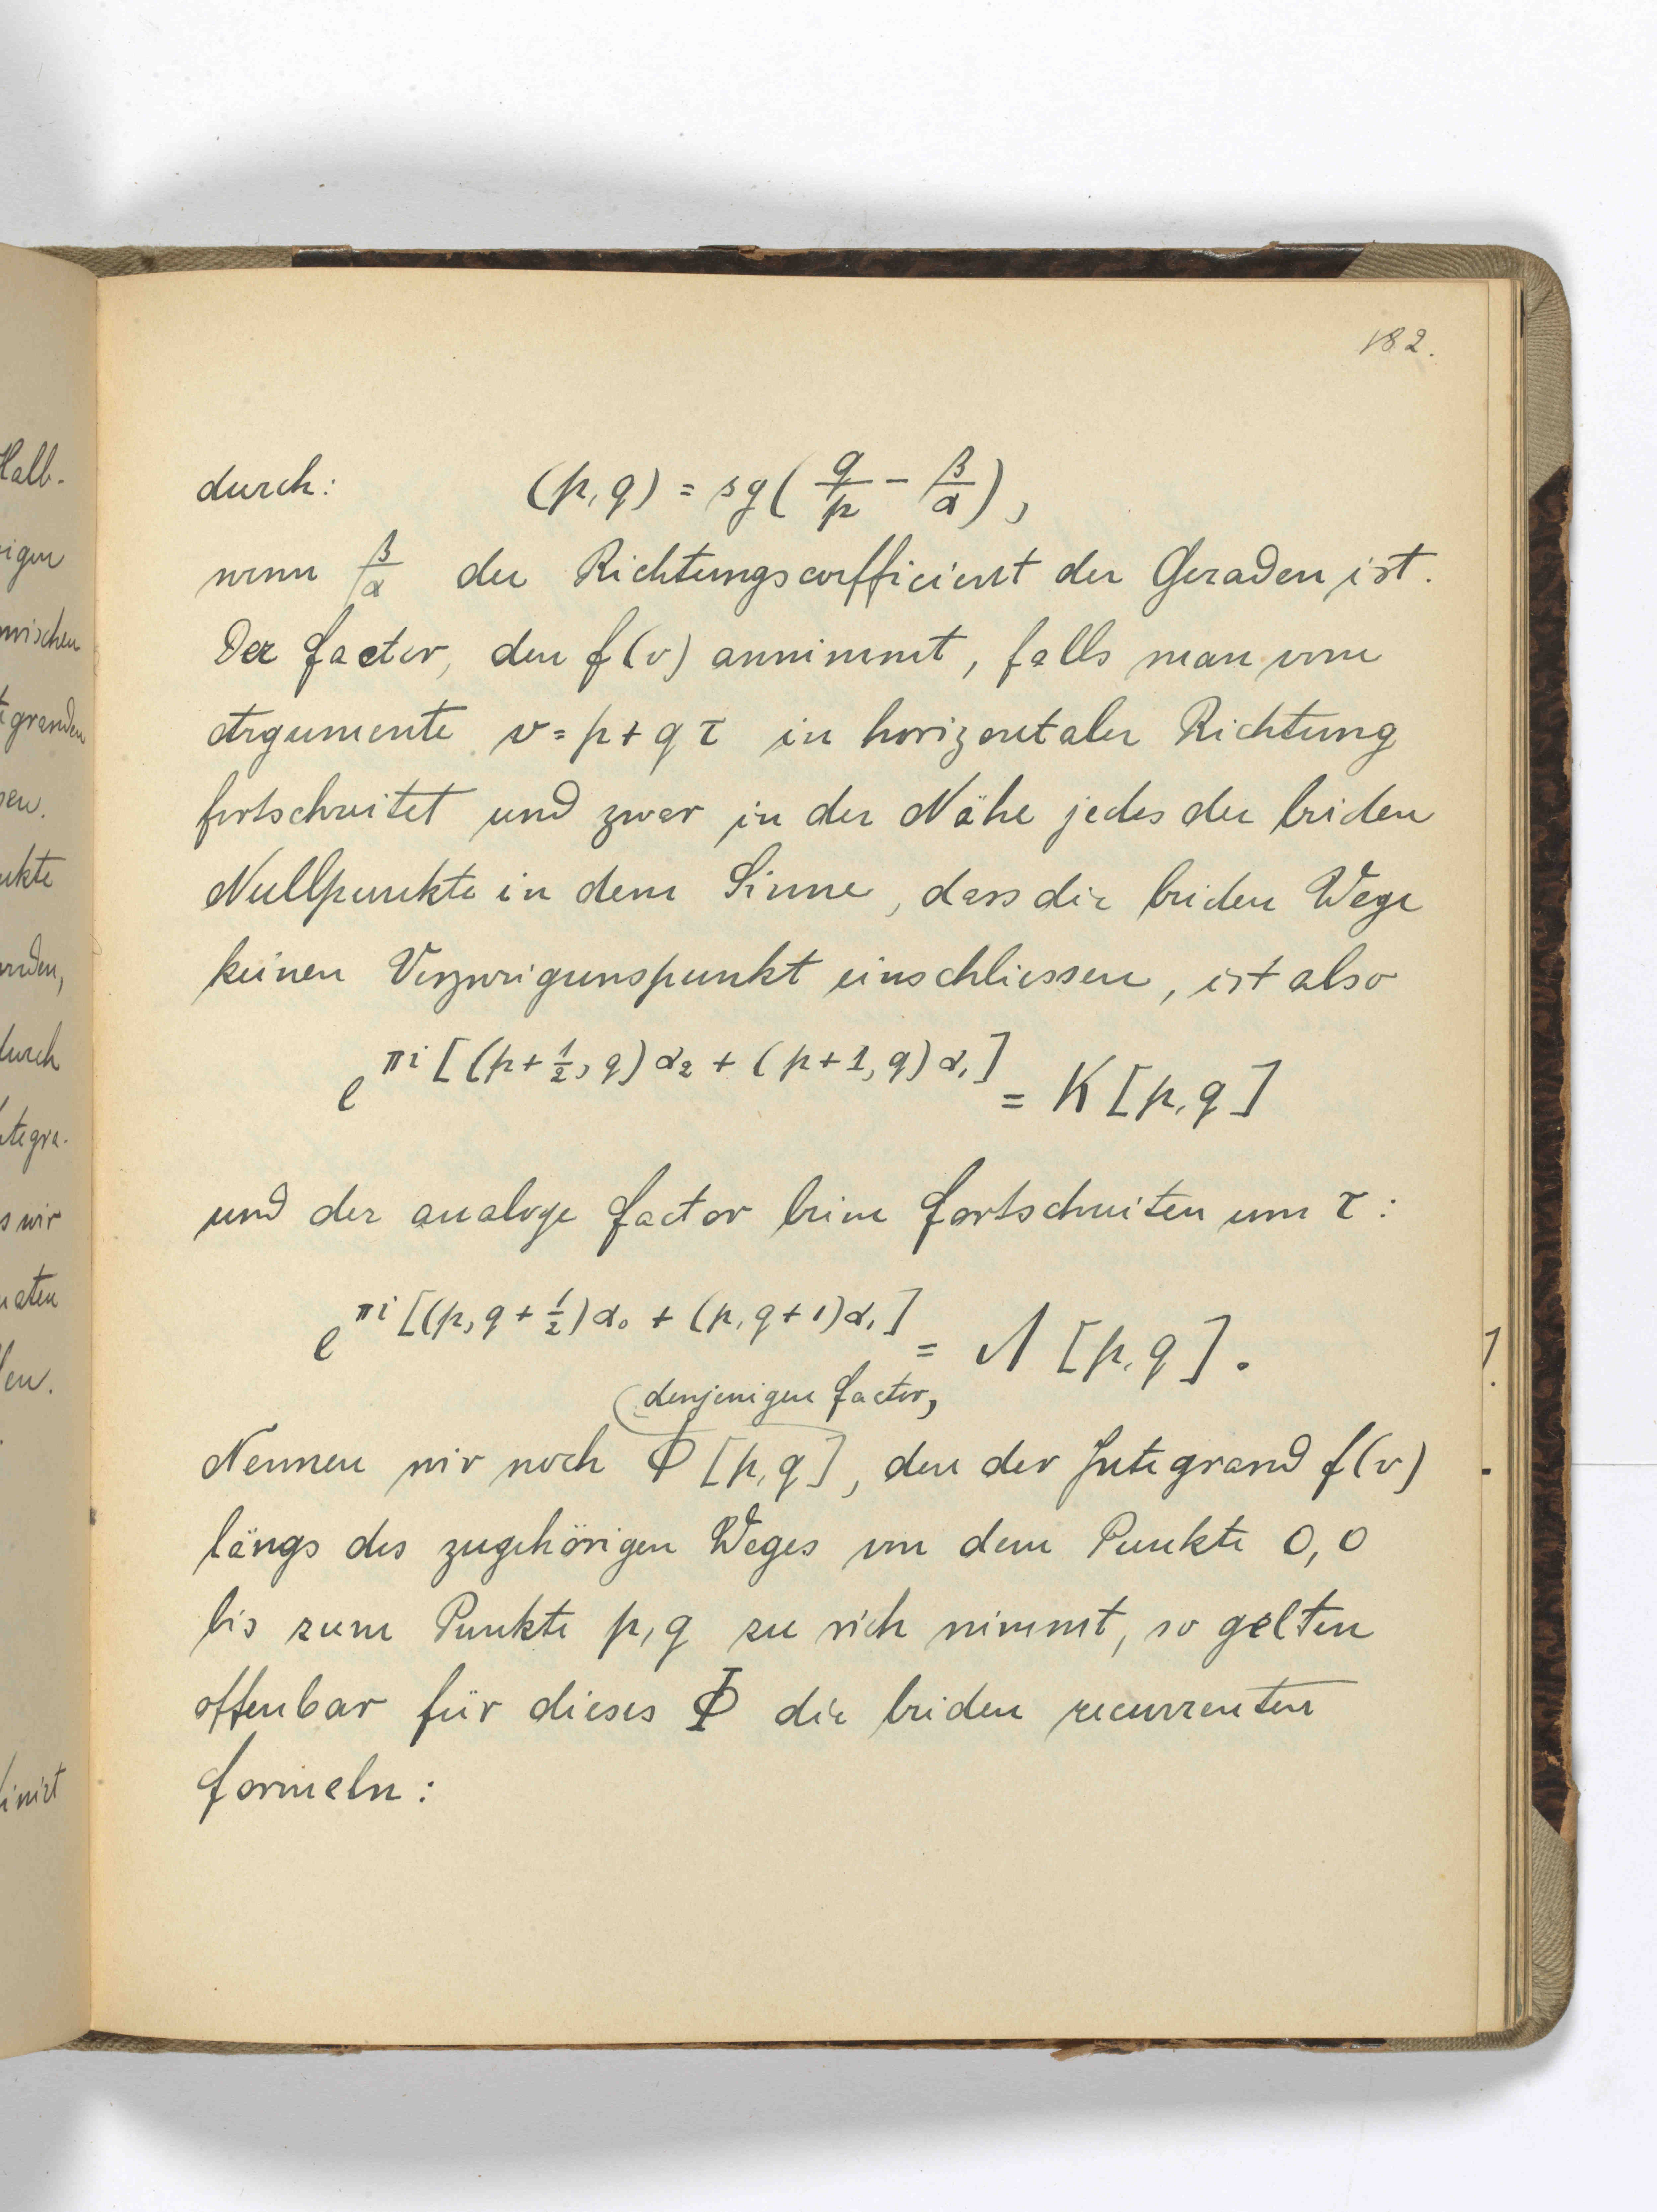 182.
durch: (p,q) = sg( q/p - β/α ),
wenn β/α der Richtungscoefficient der Geraden ist.
Der Factor, den f(v) annimmt, falls man vom
Argumente v = p + q τ in horizontaler Richtung
fortschreitet und zwar in der Nähe jedes der beiden
Nullpunkte in dem Sinne, dass die beiden Wege
keinen Verzweigunspunkt einschliessen, ist also
e^{πi [(p+½, q) α₂ + (p+1, q) α₁]} = K [p,q]
und der analoge Factor beim Fortschreiten um τ:
e^{πi [(p, q+½) α₀ + (p, q+1) α₁]} = Λ [p,q].
denjenigen Factor,
Nennen wir noch Φ [p,q], den der Integrand f(v)
längs des zugehörigen Weges von dem Punkte 0,0
bis zum Punkte p,q zu sich nimmt, so gelten
offenbar für dieses Φ die beiden recurrenten
Formeln: